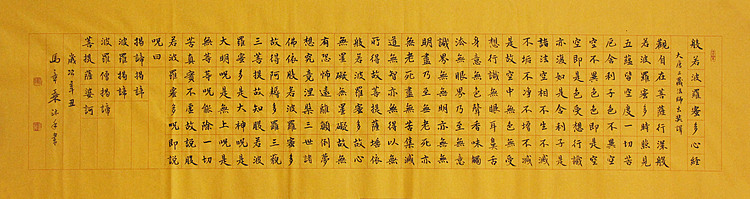 般若波羅蜜多心經
大唐三藏法師玄奘譯
觀自在菩薩行深般
若波羅蜜多時照見
五蘊皆空度一切苦
厄舍利子色不異空
空不異色色即是空
空即是色受想行識
亦復如是舍利子是
諸法空相不生不滅
不垢不淨不增不減
是故空中無色無受
想行識無眼耳鼻舌
身意無色聲香味觸
法無眼界乃至無意
識界無無明亦無無
明盡乃至無老死亦
無老死盡無苦集滅
道無智亦無得以無
所得故菩提薩埵依
般若波羅蜜多故心
無罣礙無罣礙故無
有恐怖遠離顛倒夢
想究竟涅槃三世諸
佛依般若波羅蜜多
故得阿耨多羅三藐
三菩提故知般若波
羅蜜多是大神呪是
大明呪是無上呪是
無等等呪能除一切
苦真實不虛故說般
若波羅蜜多呪即說
呪曰
揭諦揭諦
波羅揭諦
波羅僧揭諦
菩提薩婆訶
歲次辛丑